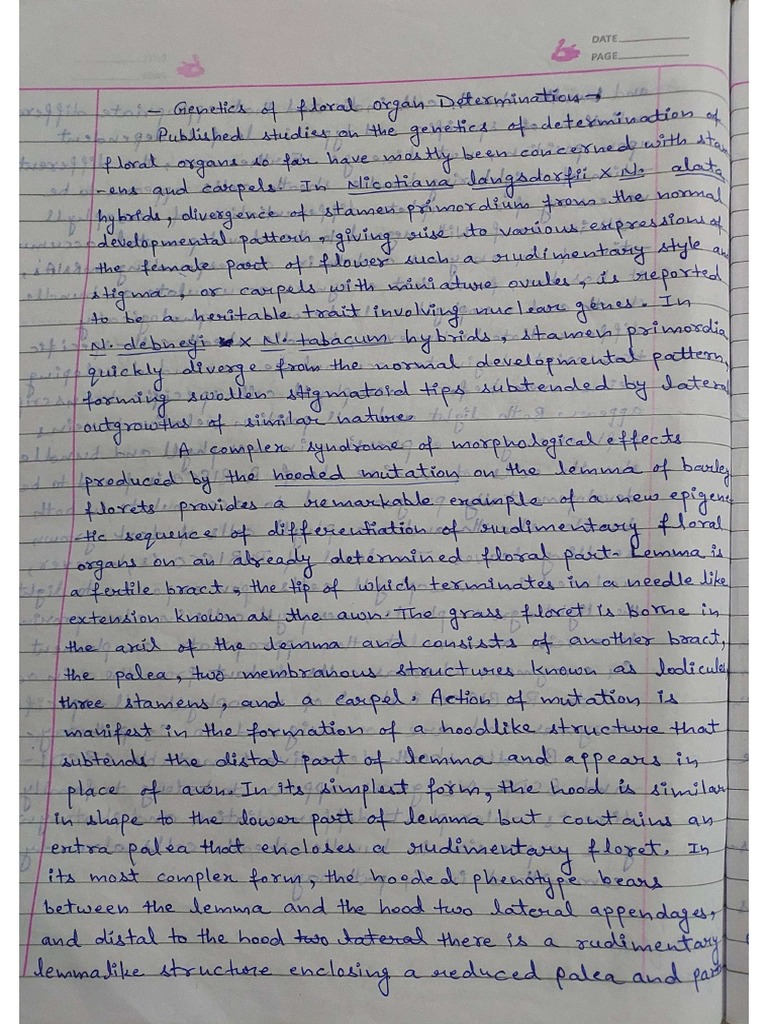 DATE
PAGE
- Genetics of floral organ Determination →
Published studies on the genetics of determination of
floral organs so far have mostly been concerned with stam
-ens and carpels. In Nicotiana langsdorfii × N. alata
hybrids, divergence of stamen primordium from the normal
developmental pattern, giving rise to various expressions of
the female part of flower such a rudimentary style an
stigma, or carpels with miniature ovules, is reported
to be a heritable trait involving nuclear genes. In
N. debneyi × N. tabacum hybrids, stamen primordia
quickly diverge from the normal developmental pattern,
forming swollen stigmatoid tips subtended by lateral
outgrowths of similar nature.
A complex syndrome of morphological effects
produced by the hooded mutation on the lemma of barley
florets provides a remarkable example of a new epigene
-tic sequence of differentiation of rudimentary floral
organs on an already determined floral part. Lemma is
a fertile bract, the tip of which terminates in a needle like
extension known as the awn. The grass floret is borne in
the axil of the lemma and consists of another bract,
the palea, two membranous structures known as lodicules
three stamens, and a carpel. Action of mutation is
manifest in the formation of a hoodlike structure that
subtends the distal part of lemma and appears in
place of awn. In its simplest form, the hood is similar
in shape to the lower part of lemma but contains an
extra palea that encloses a rudimentary floret. In
its most complex form, the hooded phenotype bears
between the lemma and the hood two lateral appendages,
and distal to the hood two lateral there is a rudimentary
lemmalike structure enclosing a reduced palea and